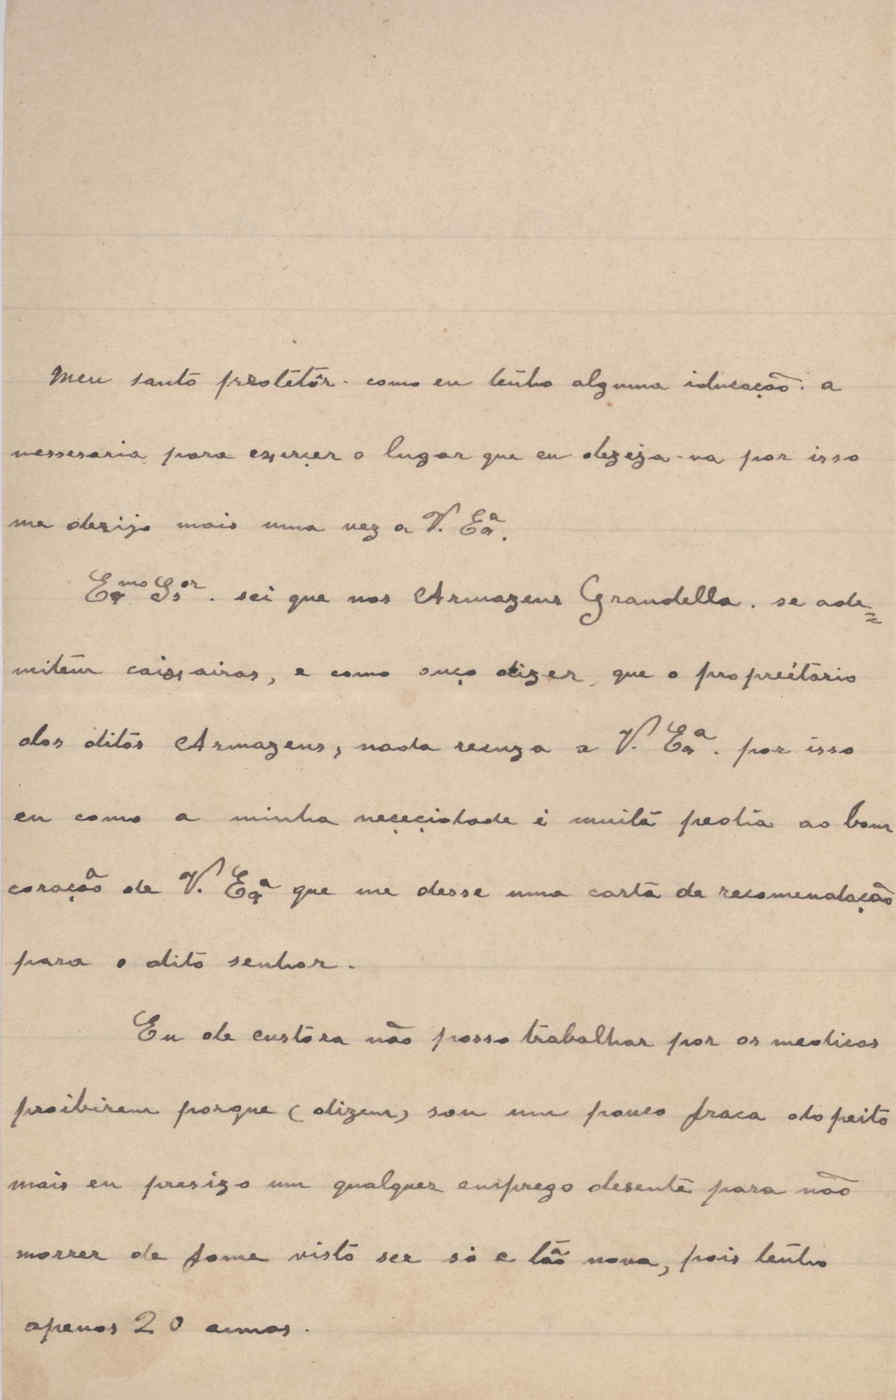 Meu santo protetôr. como eu tenho alguma iducação. a
nessesaria para exerçer o lugar que eu dezeja-va por isso
me derijo mais uma vez a V. Exª.
Exmo Snor. sei que nos Armazens Grandella. se ade=
mitem caixairas, e como ouço dizer, que o proprèitario
dos ditos Armazens, nada recuza a V. Exª. por isso
eu como a minha neçeçidade è muita pedia ao bom
coração de V. Exª que me desse uma carta de recomendação
para o dito senhor.
Eu de custora não posso trabalhar por os medicos
proibirem porque (dizem) sou um pouco fraca do peito
mais eu presizo um qualquer emprego desente para não
morrer de fome visto ser sò e tão nova, pois tenho
apenas 20 annos.